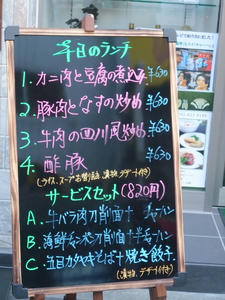 本日のランチ
1. カニ肉と豆腐の煮込み ¥630
2. 豚肉となすの炒め ¥630
3. 牛肉の四川風炒め ¥630
4. 酢豚 ¥630
(ライス、スープお替り自由、漬物、デザート付き)
サービスセット(820円)
A. 牛バラ肉刀削面+半チャーハン
B. 海鮮チャンポン刀削面+半チャーハン
C. 五目カタヤキそば+焼き餃子
(漬物、デザート付き)